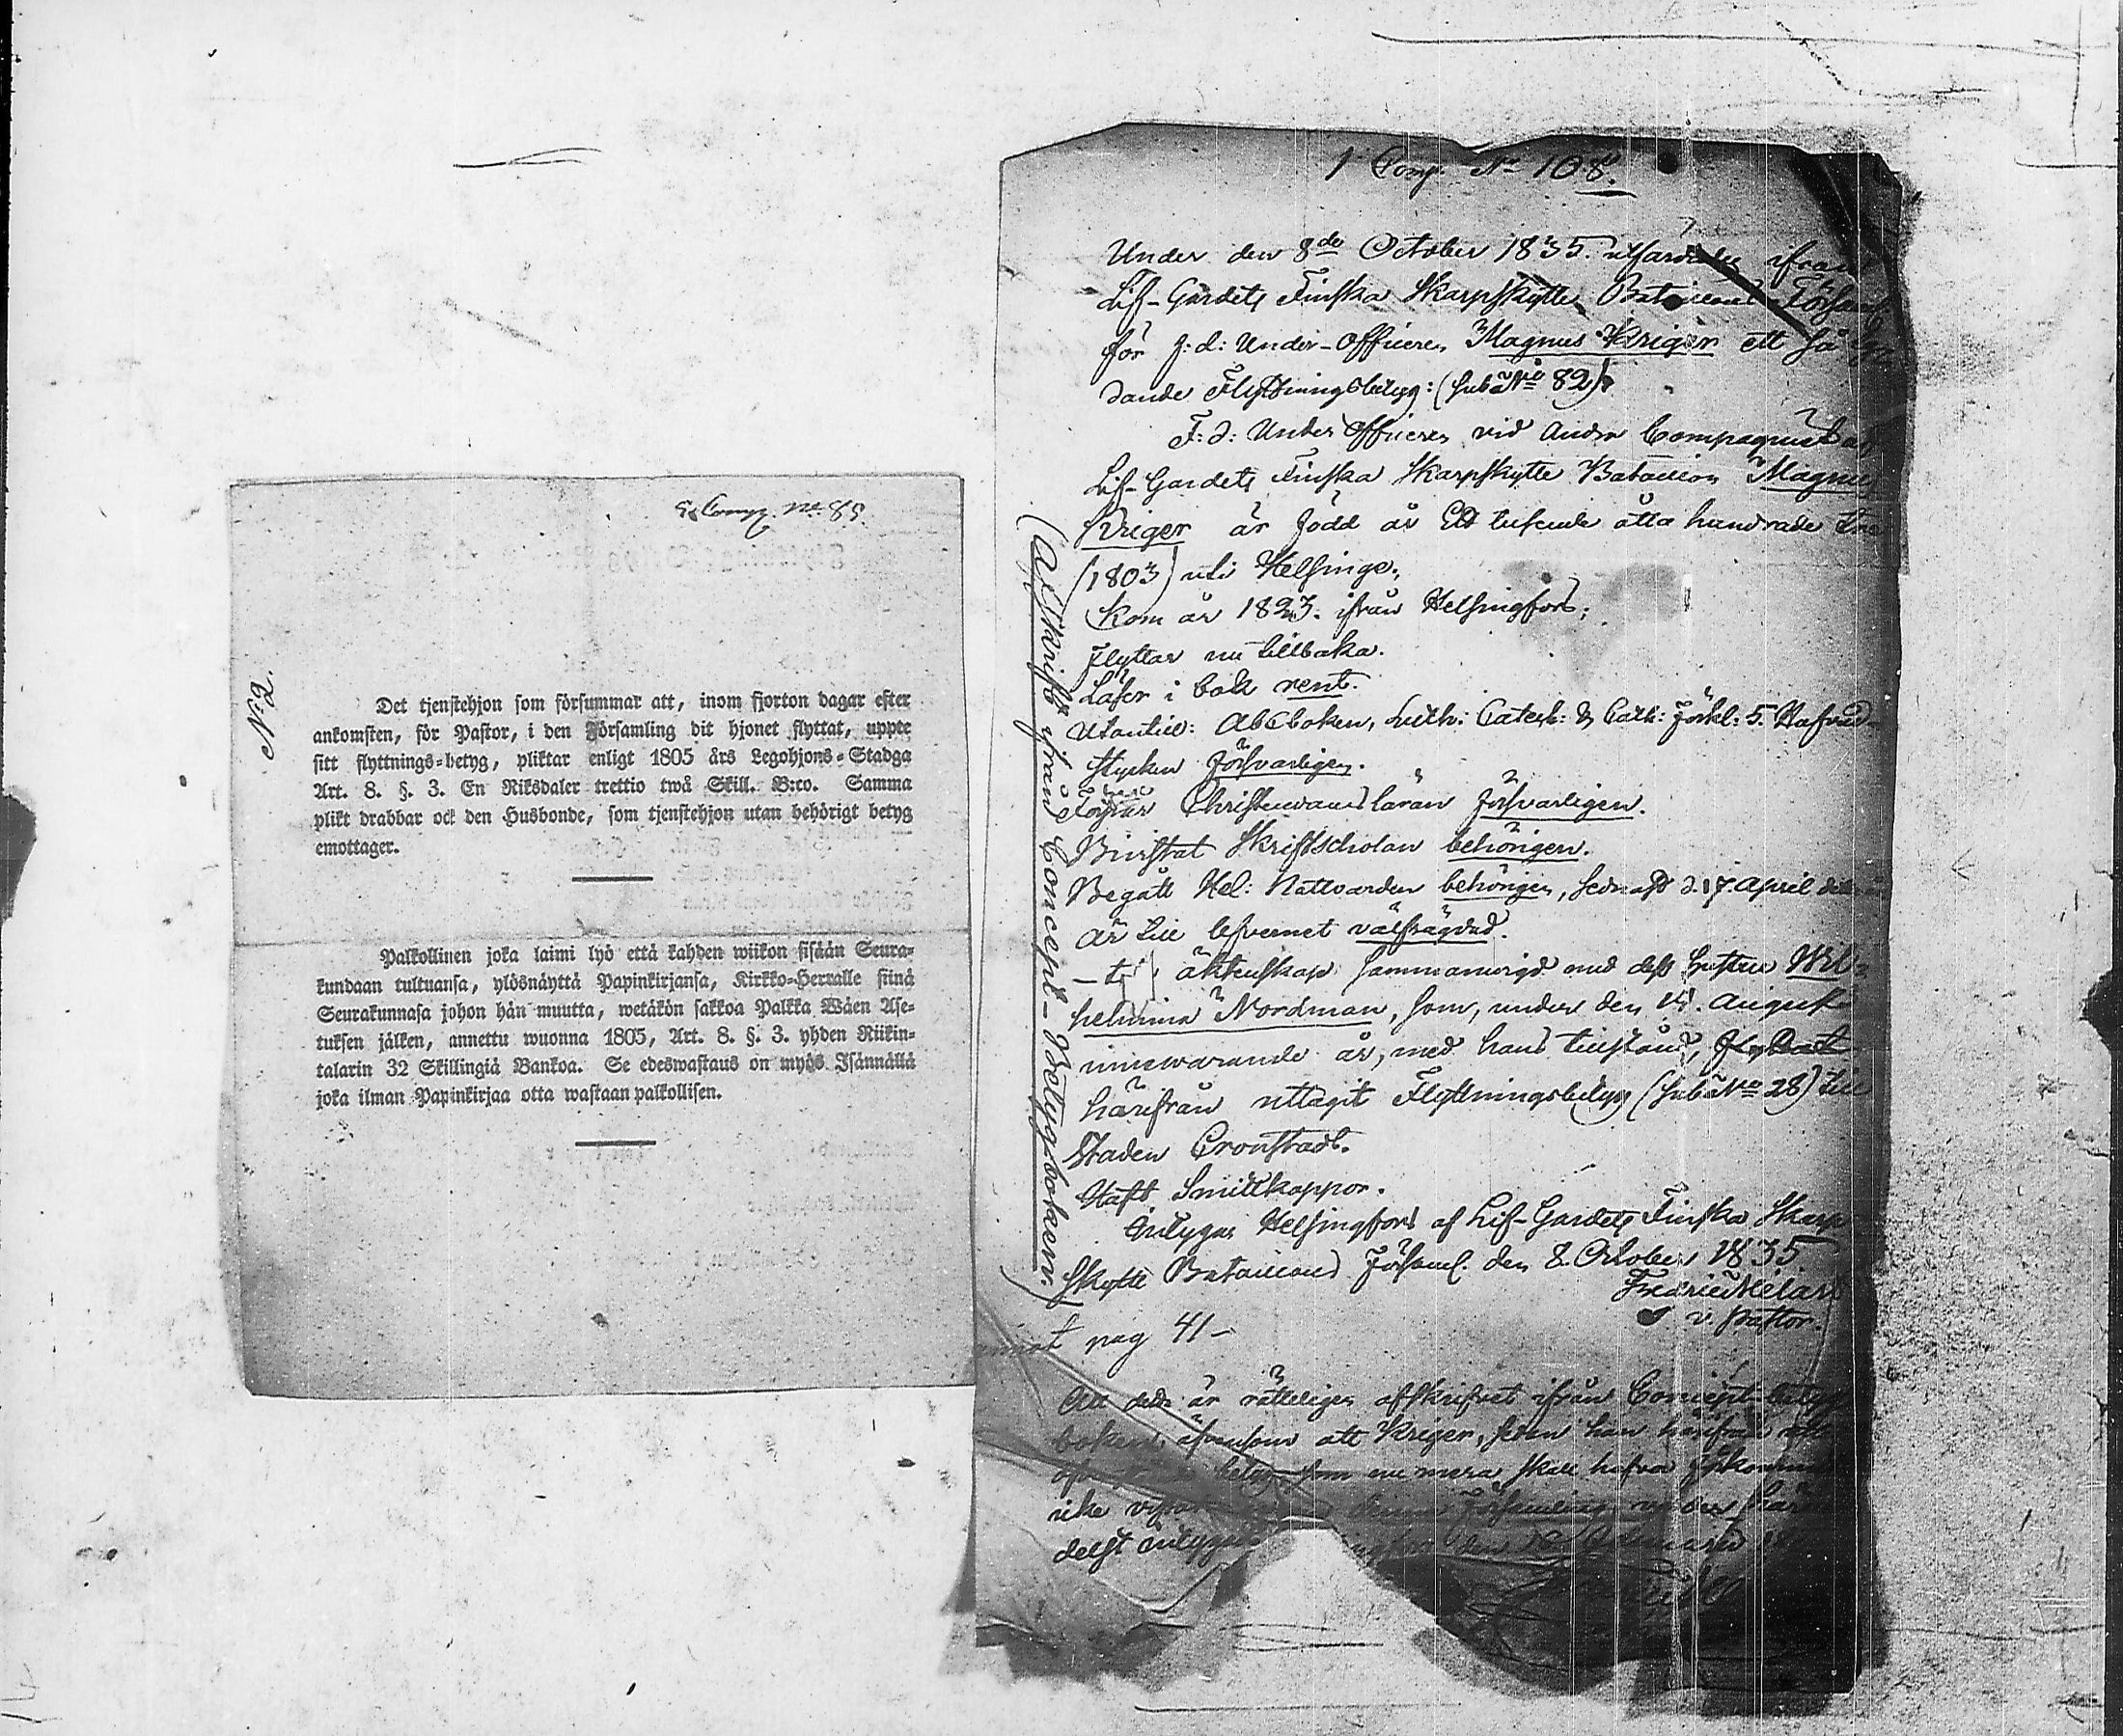 Comp. No 85.
No 2.
Det tjenstehjon som försummar att, inom fjorton dagar efter
ankomsten, för Pastor, i den Församling dit hjonet flyttat, uppte
sitt flyttnings=betyg, pliktar enligt 1805 års Legohjons=Stadga
Art. 8. §. 3. En Riksdaler trettio twå Skill. B:co. Samma
plikt drabbar ock den Husbonde, som tjenstehjon utan behörigt betyg
emottager.
Palkollinen joka laimi lyö että kahden wiikon sisään Seura=
kundaan tultuansa, ylösnäyttä Papinkirjansa, Kirkko=Herralle siinä
Seurakunnasa johon hän muutta, wetäkön sakkoa Palkka Wäen Ase=
tuksen jälken, annettu wuonna 1805, Art. 8. §. 3. yhden Riikin=
talarin 32 Skillingiä Bankoa. Se edeswastaus on myös Isännällä
joka ilman Papinkirjaa otta wastaan palkollisen.
1 Comp. No 108.
Under den 8de October 1835. utfärdades ifrån
Lif-Gardets Finska Skarpskytte Bataillons Församl.
för f: d: Under-Officeren Magnus Kriger ett så ly
dande Flyttningsbetyg: (sub No 82)
F: d: Under Officeren vid Andra Compagniet af
Lif-Gardets Finska Skarpskytte Bataillon Magnus
Kriger är född år Ett tusende åtta hundrade tre
(1803) uti Helsinge;
Kom år 1823. ifrån Helsingfors;
Flyttar nu tillbaka.
Läser i bok rent.
Utantill: Abcboken, Luth: Catech: & Cath: Förkl: 5. Hufvud-
stycken försvarligen.
Förstår Christendomsläran försvarligen.
Bivistat Skriftscholan behörigen.
Begått Hel: Nattvarden behörigen, sednast d. 17. April detta år
Är till lefvernet välfrägdad.
äktenskap sammanvigd med dess hustru Wil-
helmina Nordman, som, under den 14. Augusti
innevarande år, med hans tillstånd, flyttat
härifrån uttagit Flyttningsbetyg (sub No 28) till
Staden Cronstadt.
Haft Smittkoppor.
Intygar Helsingfors af Lif-Gardets Finska Skarp
Skytte Bataillons Församl. den 8. October 1835.
v. Pastor.
pag 41-
(Afskrift ifrån Concept-Betygsboken)
Att detta är rätteligen afskrifvet ifrån Concept-betygs
boken, äfvensom att Kriger, sedan han härifrån
betyg som nu mera skall hafva förkommit
icke denna Församling
delst intygas den